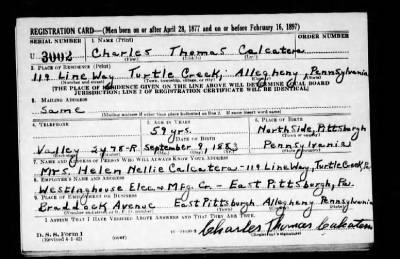 REGISTRATION CARD—(Men born on or after April 28, 1877 and on or before February 16, 1897)
SERIAL NUMBER 1. NAME (Print) ORDER NUMBER
U 3002 Charles Thomas Calcatera
(First) (Middle) (Last)
2. PLACE OF RESIDENCE (Print)
119 Line Way Turtle Creek, Allegheny, Pennsylvania
(Number and street) (Town, township, village, or city) (County) (State)
[THE PLACE OF RESIDENCE GIVEN ON THE LINE ABOVE WILL DETERMINE LOCAL BOARD
JURISDICTION; LINE 2 OF REGISTRATION CERTIFICATE WILL BE IDENTICAL]
3. MAILING ADDRESS
Same
[Mailing address if other than place indicated on line 2. If same insert word same]
4. TELEPHONE 5. AGE IN YEARS 6. PLACE OF BIRTH
59 yrs. North Side, Pittsburgh
DATE OF BIRTH
Valley 2478-R September 9, 1883 Pennsylvania
7. NAME AND ADDRESS OF PERSON WHO WILL ALWAYS KNOW YOUR ADDRESS
Mrs. Helen Nellie Calcatera-119 Line Way, Turtle Creek, Pa
8. EMPLOYER'S NAME AND ADDRESS
Westinghouse Elec & Mfg. Co - East Pittsburgh, Pa.
9. PLACE OF EMPLOYMENT OR BUSINESS
Braddock Avenue East Pittsburgh Allegheny Pennsylvania
(Number and street or R. F. D. number) (Town) (County) (State)
I AFFIRM THAT I HAVE VERIFIED ABOVE ANSWERS AND THAT THEY ARE TRUE.
D. S. S. Form 1
(Revised 4-1-42) (over) Charles Thomas Calcatera
(Registrant's signature)